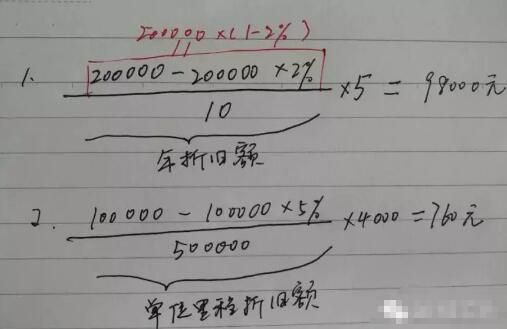 200000×(1-2%)
1. (200000-200000×2%)/10 ×5=98000元
年折旧额
2. (100000-100000×5%)/500000 ×4000=760元
单位里程折旧额